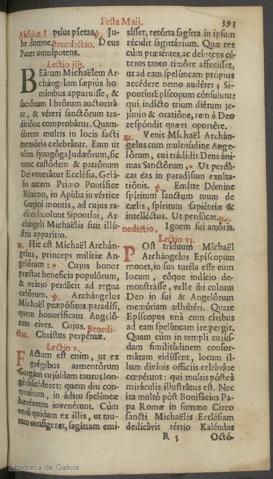 Festa Maij.
393
Absolut. I psius pietas, Ju-
be domne. Benedictio. Deus
Pater omnipotens.
Lectio iiij.
BEátum Michaëlem Ar-
chángelum sæpius ho-
mínibus apparuísse, &
sacrórum librórum auctoritá-
te, & véteri sanctórum tra-
ditióne comprobátur. Quam-
óbrem multis in locis facti
memória celebrátur. Eum ut
olim synagóga Judæórum, sic
nunc custódem & patrónum
Dei venerátur Ecclésia. Gelá-
sio autem Primo Pontífice
Máximo, in Apúlia in vértice
Gargáni montis, ad cujus ra-
díces íncolunt Sipontíni, Ar-
chángeli Michaëlis fuit illú-
stris apparítio.
℟. Hic est Michaël Archán-
gelus, princeps milítiæ An-
gelórum: * Cujus honor
præstat benefícia populórum,
& orátio perdúcit ad regna
cælórum. ℣. Archángelus
Míchaël præpósitus paradísi,
quem honoríficant Angeló-
rum cives. Cujus. Benedi-
ctio. Christus perpétuæ.
Lectio v.
FActum est enim, ut ex
grégibus armentórum
Gargáni cujúsdam taurus lon-
gè discéderet: quem diu con-
quisítum, in áditu spelúncæ
hæréntem invenérunt. Cùm
verò quidam ex illis, ut tau-
rum confígeret, sagíttam emi-
sísset, retórta sagítta in ipsum
récidit sagittárium. Quæ res
cùm præséntes, ac deínceps cé-
teros tanto timóre affecísset,
ut ad eam spelúncam própiùs
accédere nemo audéret; Si-
pontíni Epíscopum consúlunt:
qui indícto trium diérum je-
júnio & oratióne, rem à Deo
respóndit quæri oportére.
℟. Venit Míchaël Archán-
gelus cum multitúdine Ange-
lórum, cui trádidit Deus áni-
mas Sanctórum, * Ut perdú-
cat eas in paradísum exulta-
tiónis. ℣. Emítte Dómine
spíritum sanctum tuum de
cælis, spíritum sapiéntiæ &
intelléctus. Ut perdúcat. Be-
nedictio. Ignem sui amóris.
Lectio vj.
POst tríduum Míchaël
Archángelus Epíscopum
monet, in sua tutéla esse eum
locum, eóque indício de-
monstrásse, velle ibi cultum
Deo in sui & Angelórum
memóriam adhibéri. Quare
Epíscopus unà cum cívibus
ad eam spelúncam ire pergit.
Quam cùm in templi cujús-
dam similitúdinem confor-
mátam vidíssent, locum il-
lum divínis offíciis celebráre
cœpérunt: qui multis pósteà
miráculis illustrátus est. Nec
ita multò pòst Bonifácius Pa-
pa Romæ in summo Circo
sancti Michaëlis Ecclésiam
dedicávit tértio Kaléndas
R 5
Octó-
Biblioteca de Galicia